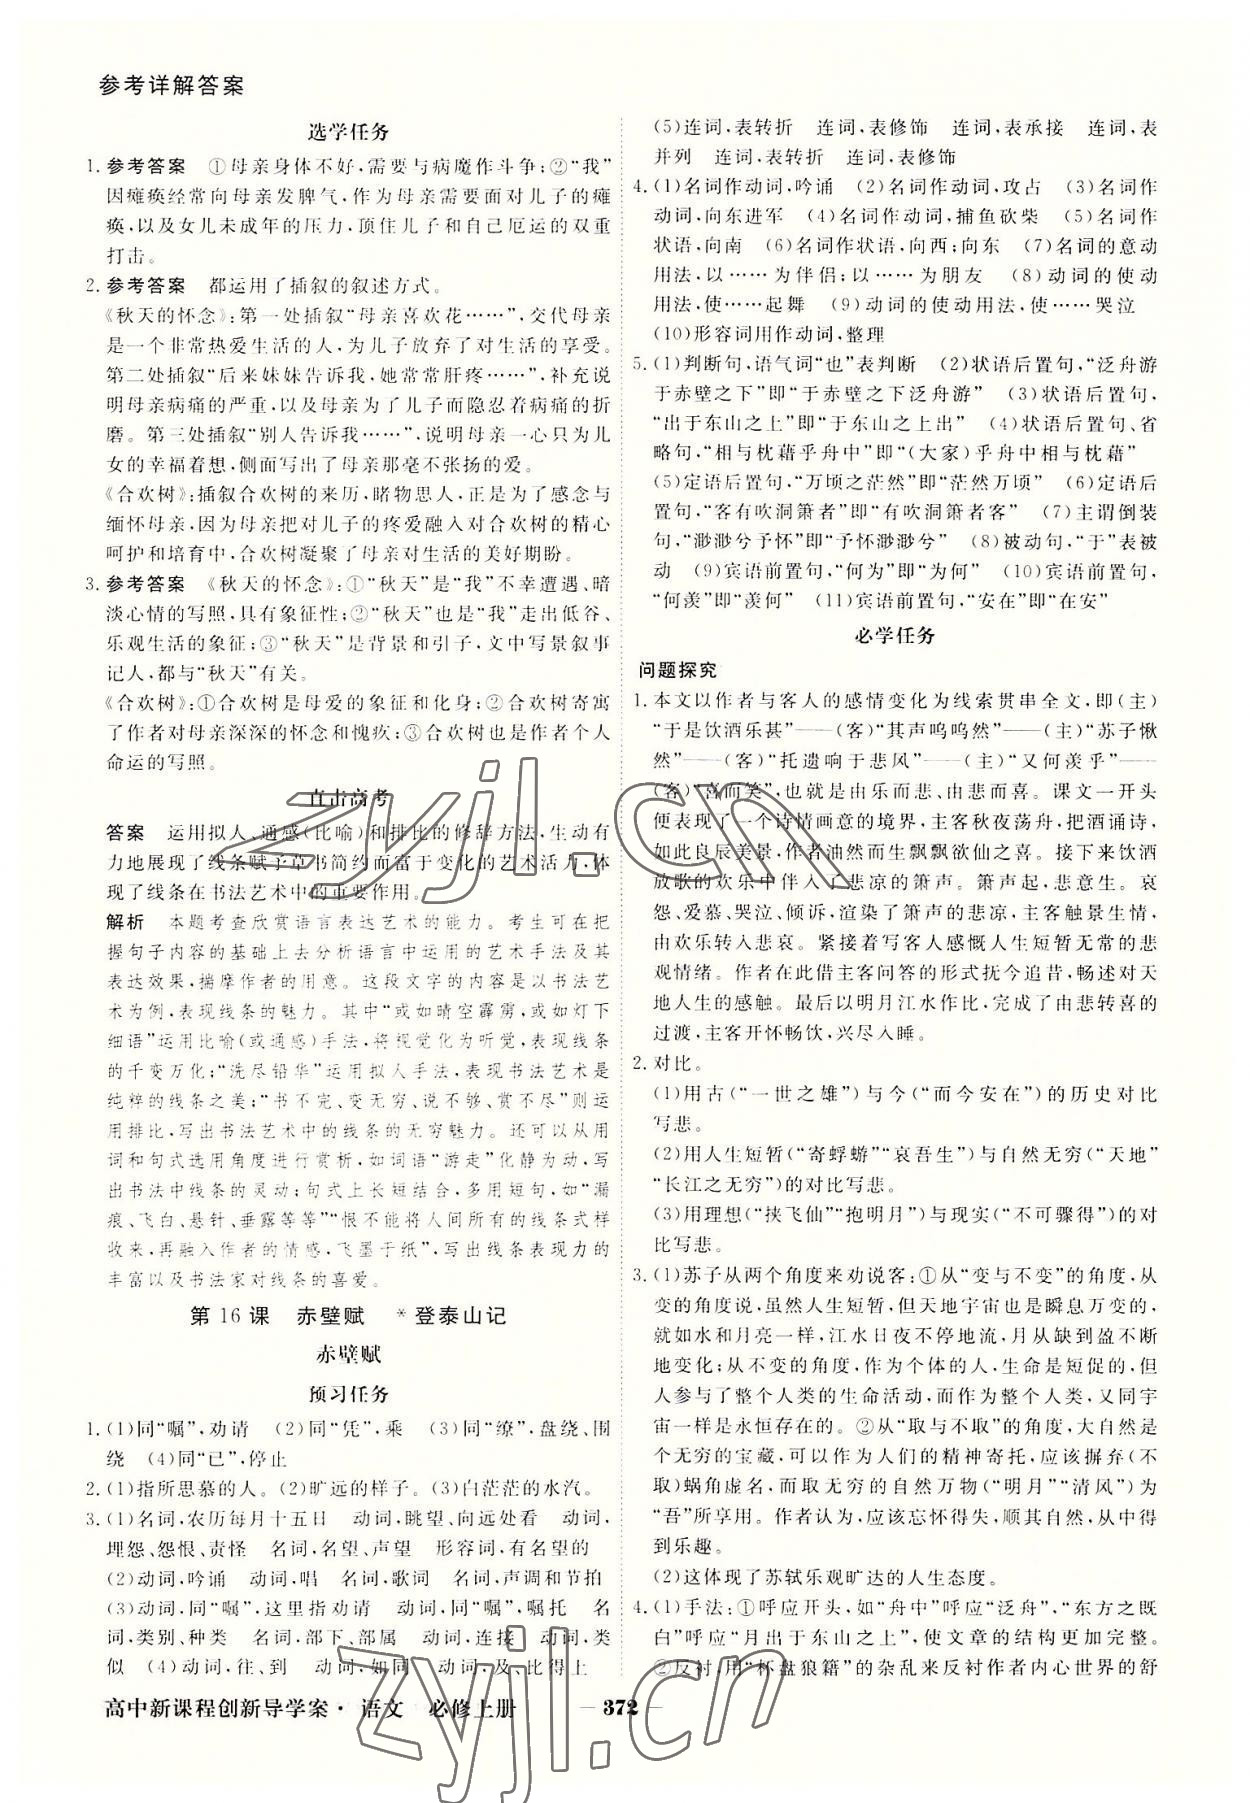 参考详解答案
选学任务
1. 参考答案　①母亲身体不好,需要与病魔作斗争;②“我”
因瘫痪经常向母亲发脾气,作为母亲需要面对儿子的瘫
痪,以及女儿未成年的压力,顶住儿子和自己厄运的双重
打击。
2. 参考答案　都运用了插叙的叙述方式。
《秋天的怀念》:第一处插叙“母亲喜欢花……”,交代母亲
是一个非常热爱生活的人,为儿子放弃了对生活的享受。
第二处插叙“后来妹妹告诉我,她常常肝疼……”,补充说
明母亲病痛的严重,以及母亲为了儿子而隐忍着病痛的折
磨。第三处插叙“别人告诉我……”,说明母亲一心只为儿
女的幸福着想,侧面写出了母亲那毫不张扬的爱。
《合欢树》:插叙合欢树的来历,睹物思人,正是为了感念与
缅怀母亲,因为母亲把对儿子的疼爱融入对合欢树的精心
呵护和培育中,合欢树凝聚了母亲对生活的美好期盼。
3. 参考答案　《秋天的怀念》:①“秋天”是“我”不幸遭遇、暗
淡心情的写照,具有象征性;②“秋天”也是“我”走出低谷、
乐观生活的象征;③“秋天”是背景和引子,文中写景叙事
记人,都与“秋天”有关。
《合欢树》:①合欢树是母爱的象征和化身;②合欢树寄寓
了作者对母亲深深的怀念和愧疚;③合欢树也是作者个人
命运的写照。
直击高考
答案　运用拟人、通感(比喻)和排比的修辞方法,生动有
力地展现了线条赋予草书简约而富于变化的艺术活力,体
现了线条在书法艺术中的重要作用。
解析　本题考查欣赏语言表达艺术的能力。考生可在把
握句子内容的基础上去分析语言中运用的艺术手法及其
表达效果,揣摩作者的用意。这段文字的内容是以书法艺
术为例,表现线条的魅力。其中“或如晴空霹雳,或如灯下
细语”运用比喻(或通感)手法,将视觉化为听觉,表现线条
的千变万化;“洗尽铅华”运用拟人手法,表现书法艺术是
纯粹的线条之美;“书不完、变无穷、说不够、赏不尽”则运
用排比,写出书法艺术中的线条的无穷魅力。还可以从用
词和句式选用角度进行赏析,如词语“游走”化静为动,写
出书法中线条的灵动;句式上长短结合,多用短句,如“漏
痕、飞白、悬针、垂露等等”“恨不能将人间所有的线条式样
收来,再融入作者的情感,飞墨于纸”,写出线条表现力的
丰富以及书法家对线条的喜爱。
第 16 课　赤壁赋　*登泰山记
赤壁赋
预习任务
1. (1)同“嘱”,劝请　(2)同“凭”,乘　(3)同“缭”,盘绕、围
绕　(4)同“已”,停止
2. (1)指所思慕的人。(2)旷远的样子。(3)白茫茫的水汽。
3. (1)名词,农历每月十五日　动词,眺望、向远处看　动词,
埋怨、怨恨、责怪　名词,名望、声望　形容词,有名望的
(2)动词,吟诵　动词,唱　名词,歌词　名词,声调和节拍
(3)动词,同“嘱”,这里指劝请　动词,同“嘱”,嘱托　名
词,类别、种类　名词,部下、部属　动词,连接　动词,类
似　(4)动词,往、到　动词,如同　动词,及、比得上
(5)连词,表转折　连词,表修饰　连词,表承接　连词,表
并列　连词,表转折　连词,表修饰
4. (1)名词作动词,吟诵　(2)名词作动词,攻占　(3)名词作
动词,向东进军　(4)名词作动词,捕鱼砍柴　(5)名词作
状语,向南　(6)名词作状语,向西;向东　(7)名词的意动
用法,以……为伴侣;以……为朋友　(8)动词的使动
用法,使……起舞　(9)动词的使动用法,使……哭泣
(10)形容词用作动词,整理
5. (1)判断句,语气词“也”表判断　(2)状语后置句,“泛舟游
于赤壁之下”即“于赤壁之下泛舟游”　(3)状语后置句,
“出于东山之上”即“于东山之上出”　(4)状语后置句、省
略句,“相与枕藉乎舟中”即“(大家)乎舟中相与枕藉”
(5)定语后置句,“万顷之茫然”即“茫然万顷”　(6)定语后
置句,“客有吹洞箫者”即“有吹洞箫者客”　(7)主谓倒装
句,“渺渺兮予怀”即“予怀渺渺兮”　(8)被动句,“于”表被
动　(9)宾语前置句,“何为”即“为何”　(10)宾语前置句,
“何羡”即“羡何”　(11)宾语前置句,“安在”即“在安”
必学任务
问题探究
1. 本文以作者与客人的感情变化为线索贯串全文,即(主)
“于是饮酒乐甚”——(客)“其声呜呜然”——(主)“苏子愀
然”——(客)“托遗响于悲风”——(主)“又何羡乎”——
(客)“喜而笑”,也就是由乐而悲、由悲而喜。课文一开头
便表现了一个诗情画意的境界,主客秋夜荡舟,把酒诵诗,
如此良辰美景,作者油然而生飘飘欲仙之喜。接下来饮酒
放歌的欢乐中伴入了悲凉的箫声。箫声起,悲意生。哀
怨、爱慕、哭泣、倾诉,渲染了箫声的悲凉,主客触景生情,
由欢乐转入悲哀。紧接着写客人感慨人生短暂无常的悲
观情绪。作者在此借主客问答的形式抚今追昔,畅述对天
地人生的感触。最后以明月江水作比,完成了由悲转喜的
过渡,主客开怀畅饮,兴尽入睡。
2. 对比。
(1)用古(“一世之雄”)与今(“而今安在”)的历史对比
写悲。
(2)用人生短暂(“寄蜉蝣”“哀吾生”)与自然无穷(“天地”
“长江之无穷”)的对比写悲。
(3)用理想(“挟飞仙”“抱明月”)与现实(“不可骤得”)的对
比写悲。
3. (1)苏子从两个角度来劝说客:①从“变与不变”的角度,从
变的角度说,虽然人生短暂,但天地宇宙也是瞬息万变的,
就如水和月亮一样,江水日夜不停地流,月从缺到盈不断
地变化;从不变的角度,作为个体的人,生命是短促的,但
人参与了整个人类的生命活动,而作为整个人类,又同宇
宙一样是永恒存在的。②从“取与不取”的角度,大自然是
个无穷的宝藏,可以作为人们的精神寄托,应该摒弃(不
取)蜗角虚名,而取无穷的自然万物(“明月”“清风”)为
“吾”所享用。作者认为,应该忘怀得失,顺其自然,从中得
到乐趣。
(2)这体现了苏轼乐观旷达的人生态度。
4. (1)手法:①呼应开头,如“舟中”呼应“泛舟”,“东方之既
白”呼应“月出于东山之上”,使文章的结构更加完整。
②反衬,用“杯盘狼籍”的杂乱来反衬作者内心世界的舒
高中新课程创新导学案·语文　必修上册　— 372 —
zyjl.cn
zyjl.cn